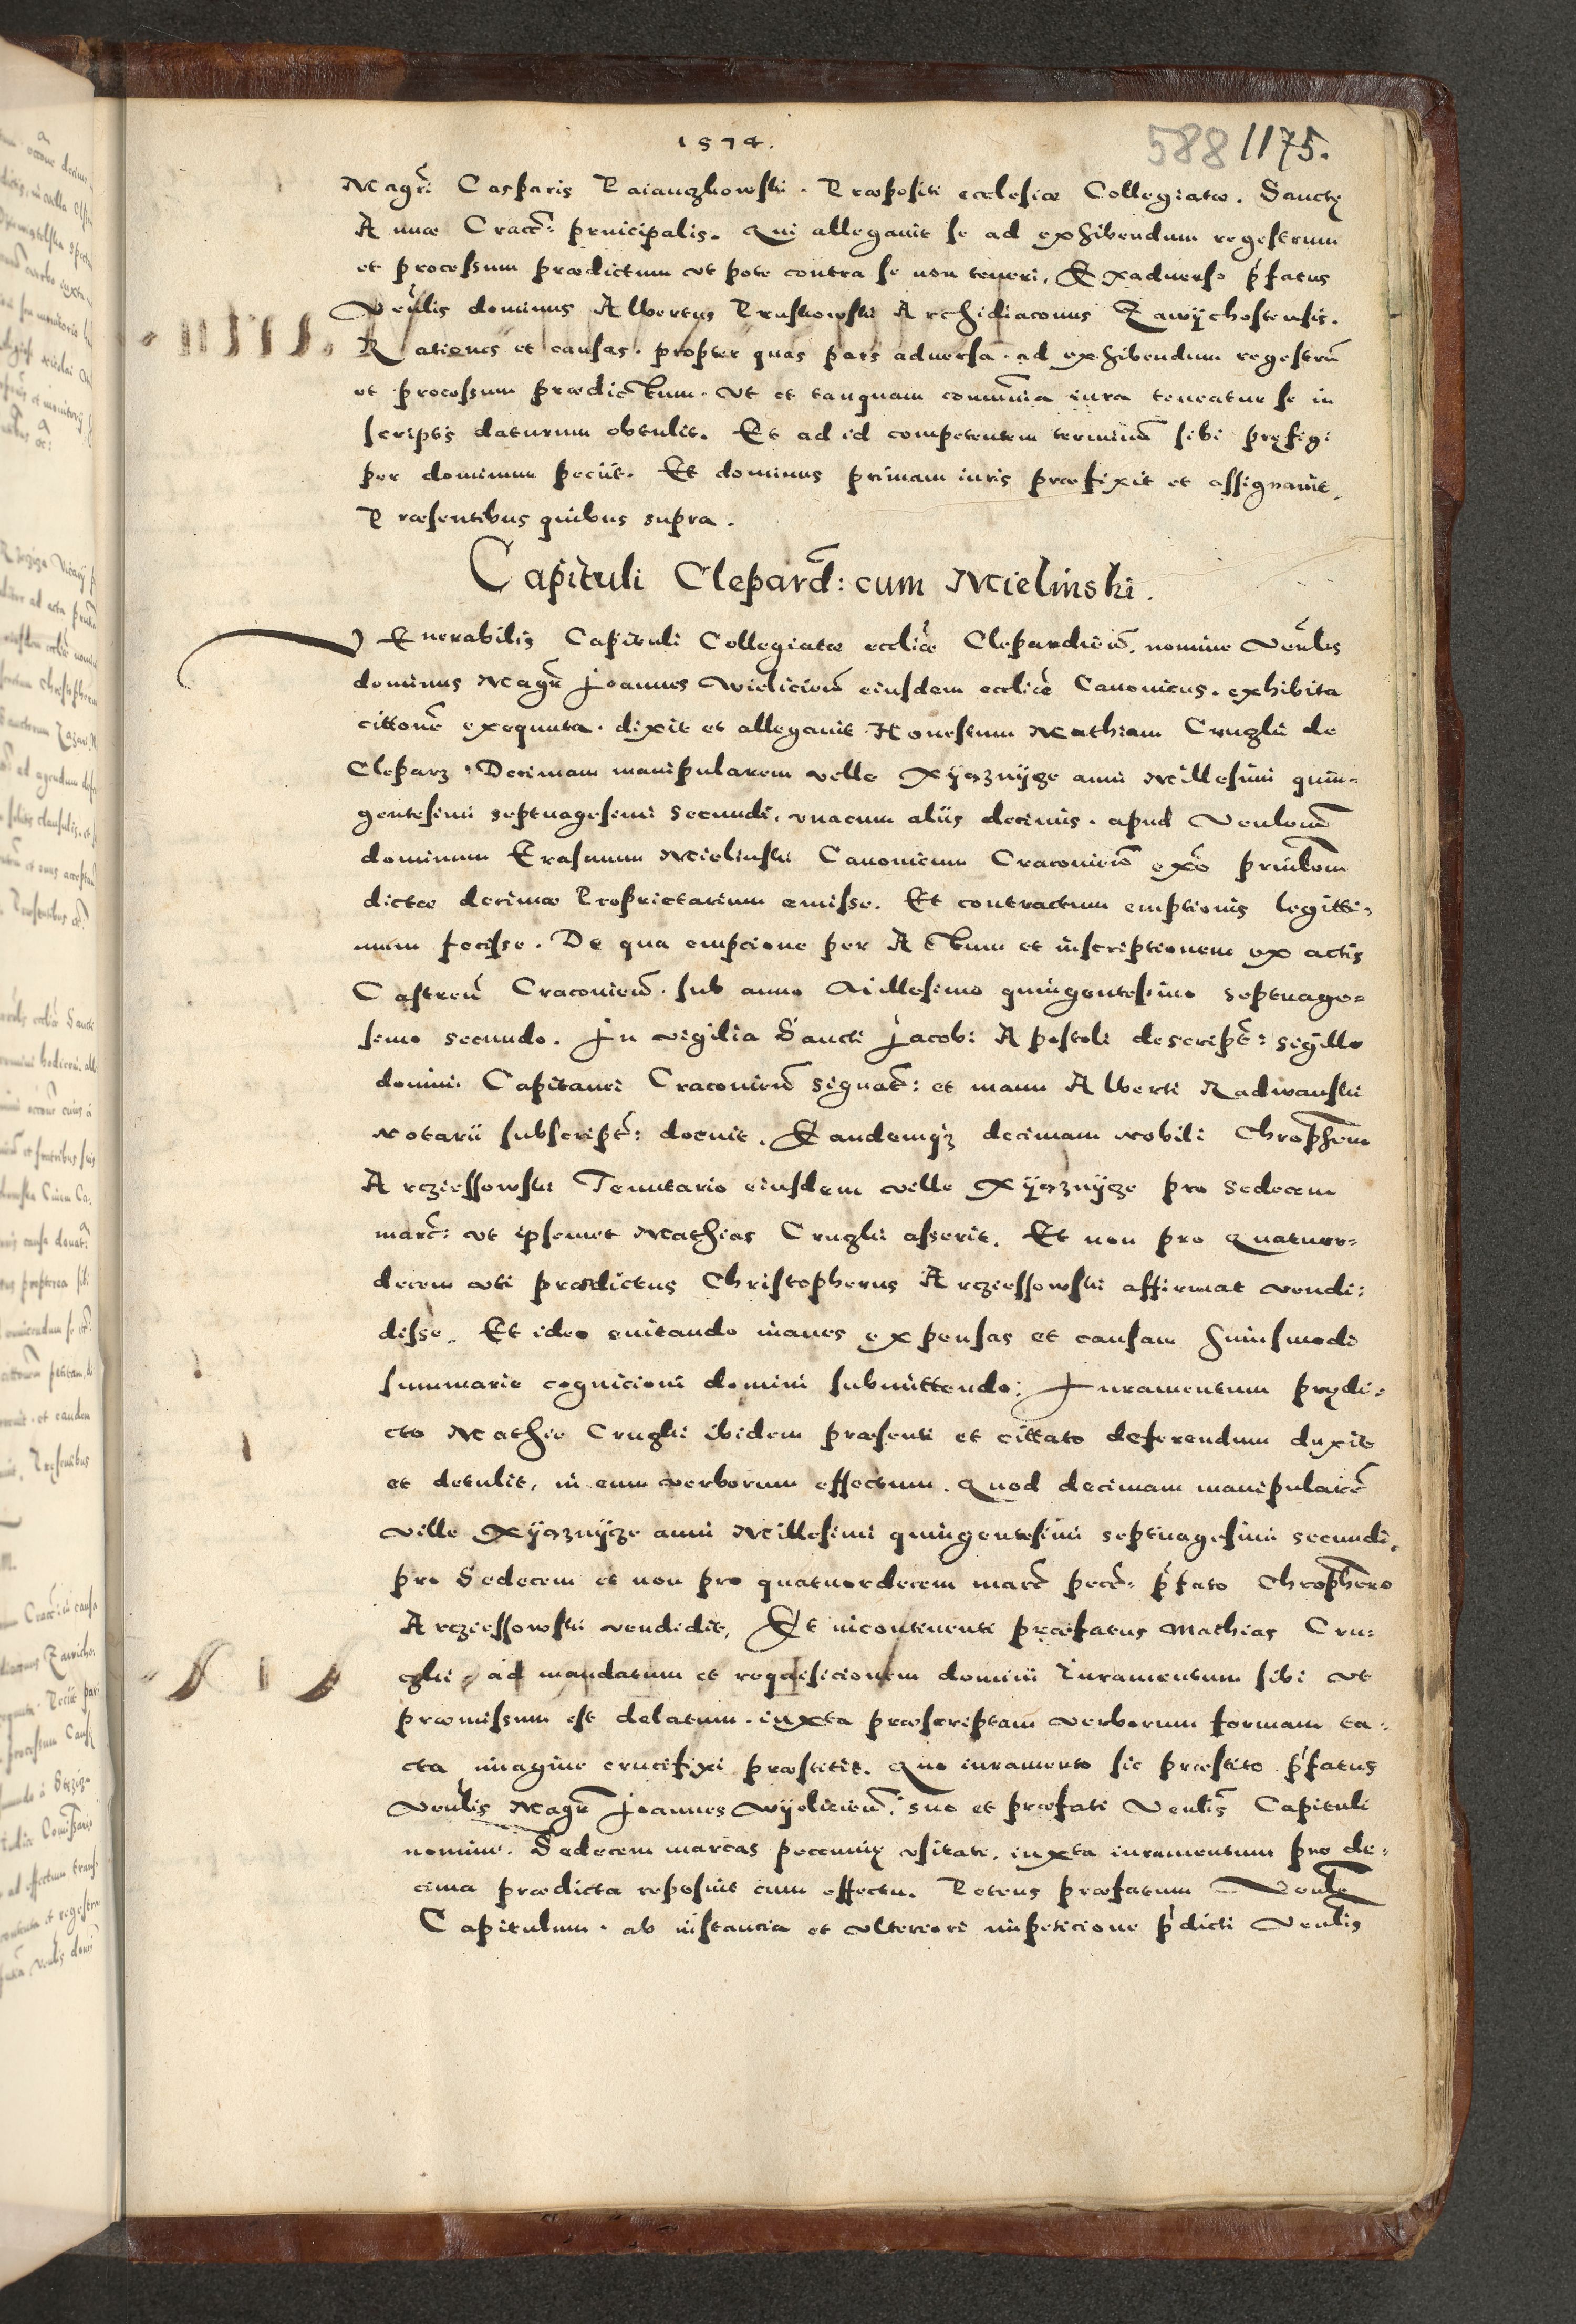 1574.
588 1175.
Magri Casparis Paianczkowski. Præpositi ecclesiæ Collegiatæ. Sanctę
Annæ Cracc: principalis. Qui allegavit se ad exhibendum regestrum
et processum prædictum ut pote contra se non teneri, Exadverso pfatus
Venlis dominus Albertus Pruskowski Archidiaconus Zawÿchostensis.
Rationes et causas. propter quas pars adversa. ad exhibendum regestrũ
et processum prædictum. Ut et tanquam communia iura teneatur se in
scriptis daturum obtulit. Et ad id competentem terminũ sibi pręfigi
per dominum peciit. Et dominus primam iuris præfixit et assignavit.
Præsentibus quibus supra.
Capituli Clepard: cum Mielinski.
VEnerabilis Capituli Collegiatæ ecclíæ Clepardien̄. nomine Venlis
dominus Magr̃ Joannes Wielicien̄ eiusdem ecclíe Canonicus. exhibita
cittone exequuta. dixit et allegavit Honestum Mathiam Cruglii de
Cleparz. Decimam manipularem ville Xÿąznÿcze anni Millesimi quin-
gentesimi septuagesimi secundi, unacum aliis decimis. apud Venlem
dominum Erasmum Mielinski Canonicum Cracovien̄
dictæ decimæ Proprietarium emisse. Et contractum emptionis legitti-
mum fecisse. De qua empcione per Actum et inscriptionem ex actis
Castren̄ Cracovien̄. sub anno Millesimo quingentesimo septuage-
simo secundo. In vigilia Sancti Jacobi Apostoli descript: sigillo
domini Capitanei Cracovien̄ signat: et manu Alberti Radwanski
Notarii subscript: docuit. Eandemqz decimam Nobili Chrophero
Arcziessowski Tenutario eiusdem ville Xÿąznÿcze pro sedecem
marc: ut ipsemet Mathias Cruglii asserit. Et non pro Quatuor-
decem uti prædictus Christopherus Arcziessowski affirmat vendi:
disse. Et ideo evitando inanes expensas et causam huiusmodi
summarie cognicioni domini submittendo: Juramentum prędi-
cto Mathie Cruglii ibidem præsenti et cittato deferendum duxit
et detulit, in eum verborum effectum. Quod decimam manipularẽ
ville Xÿąznÿcze anni Millesimi quingentesimi septuagesimi secundi,
pro Sedecem et non pro quatuordecem marc pec: pfato Chrophero
Arcziessowski vendidit, Et incontinenti præfatus Mathias Cru:
glii, ad mandatum et requisicionem domini Iuramentum sibi ut
præmissum est delatum. iuxta præscriptam verborum formam ta-
cta imagine crucifixi præstitit. Quo iuramento sic præstito pfatus
Venlis Magr̃ Joannes Wÿelicien̄, suo et præfati Venlis Capituli
nomine. Sedecem marcas pecunię usitate, iuxta iuramentum pro de-
cima prædicta reposuit cum effectu. Petens præfatum Venle
Capitulum. ab instancia et ulteriori impeticione pdicti Venlis